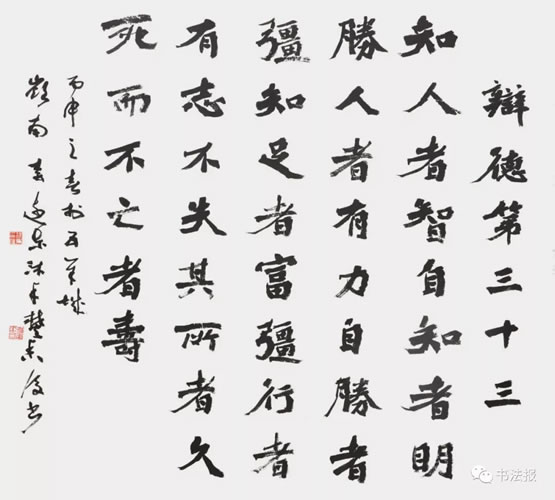 辯德第三十三
知人者智自知者明
勝人者有力自勝者
彊知足者富彊行者
有志不失其所者久
死而不亡者壽
丙申之春於五羊城
嶺南
书法报